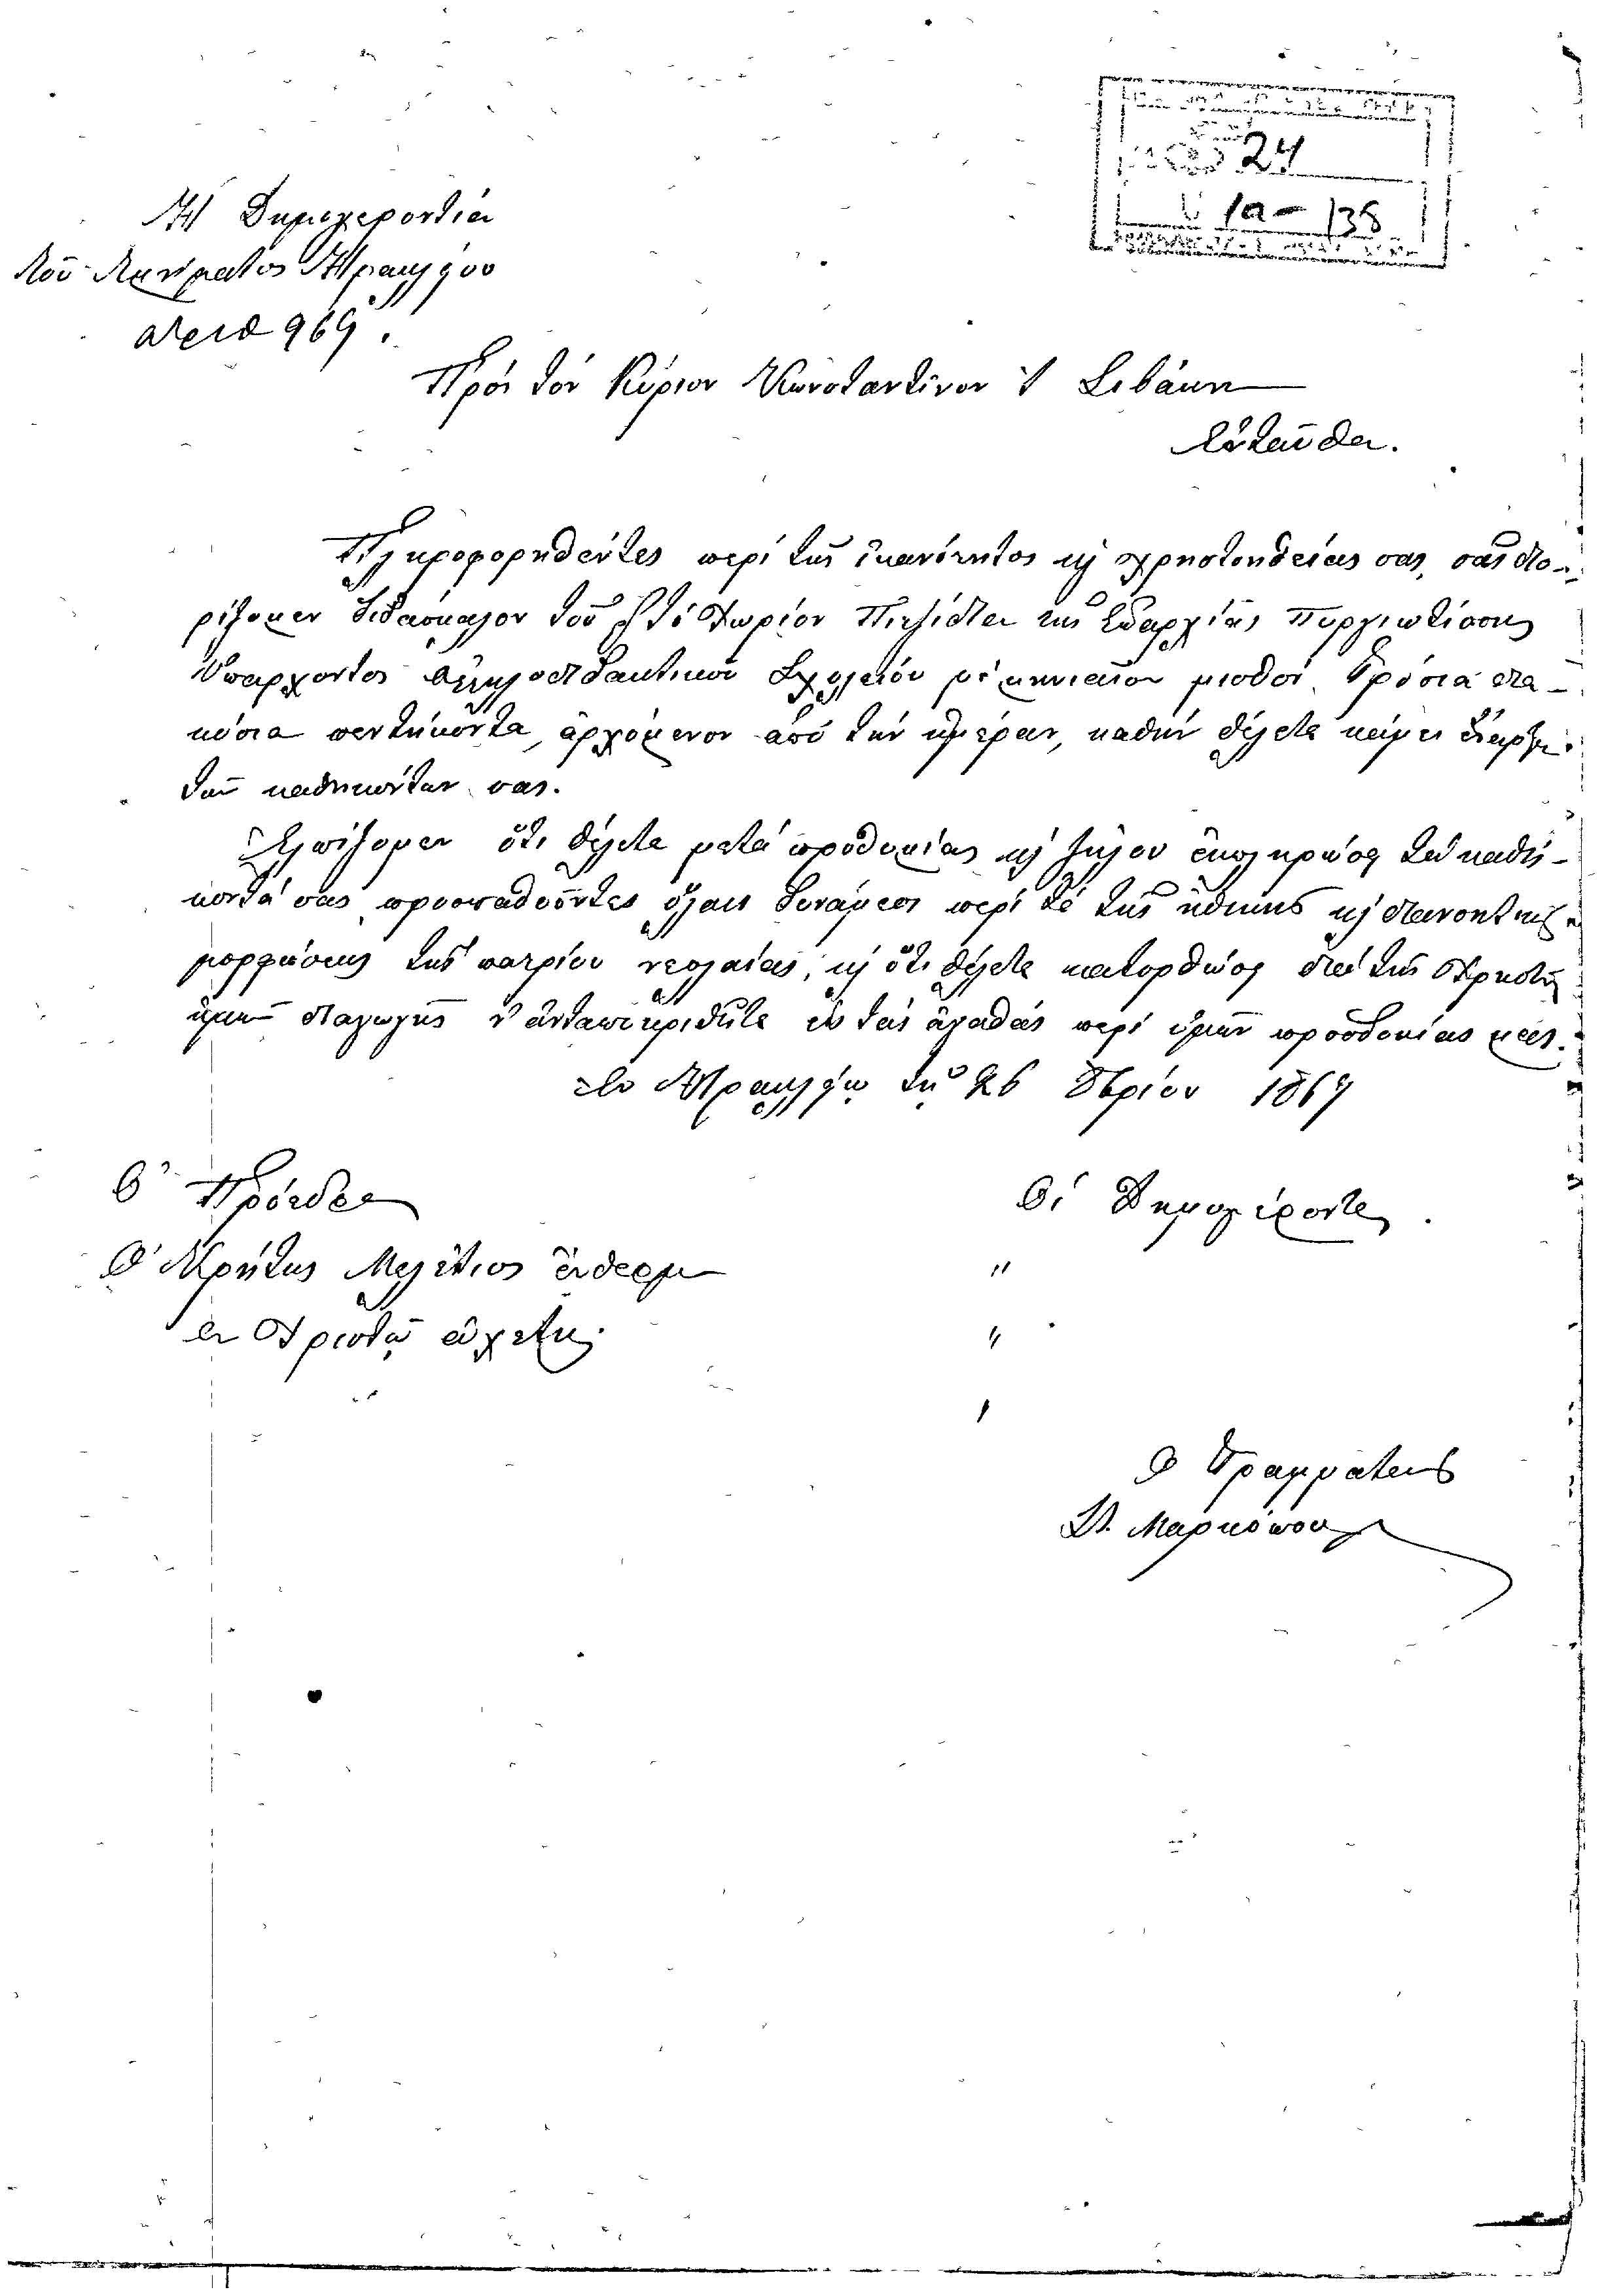 24
1α - 138
Ἡ Δημογεροντία
τοῦ Τμήματος Ἡρακλείου
ἀριθ 969.
Πρὸς τὸν Κύριον Κωνσταντῖνον Λιβάκην
Ἐνταῦθα.
Πληροφορηθέντες περὶ τῆς ἱκανότητος κ̀ χρηστοηθείας σας, σᾶς διο-
ρίζομεν διδάσκαλον τοῦ εἰς τὸ Χωρίον Πιτσίδια τῆς Ἐπαρχίας Πυργιωτίσσης
Ὑπάρχοντος ἀλληλοδιδακτικοῦ Σχολείου μὲ μηνιαῖον μισθὸν Γρόσια δια-
κόσια πεντήκοντα, ἀρχόμενον ἀπὸ τὴν ἡμέραν, καθ' ἣν θέλετε κάμει ἔναρξιν
τῶν καθηκόντων σας.
Ἐλπίζομεν ὅτι θέλετε μετὰ προθυμίας κ̀ ζήλου ἐκπληρώσῃ τὰ καθή-
κοντά σας προσπαθοῦντες ὅλαις δυνάμεσι περί τε τῆς ἠθικῆς κ̀ διανοητικῆς
μορφώσεως τῆς πατρίου νεολαίας, κ̀ ὅτι θέλετε κατορθώσῃ διὰ τῆς Χρηστῆς
ὑμῶν διαγωγῆς ν' ἀνταποκριθῆτε εἰς τὰς ἀγαθὰς περὶ ὑμῶν προσδοκίας μας.
Ἐν Ἡρακλείῳ τῇ 26 8βρίου 1867
Ὁ Πρόεδρος
Οἱ Δημογέροντες
Ὁ Κρήτης Μελέτιος ἔνθερμ
"
ἐν Χριστῷ εὐχέτης
"
Ὁ Γραμματεὺς
Μαρκόπουλ